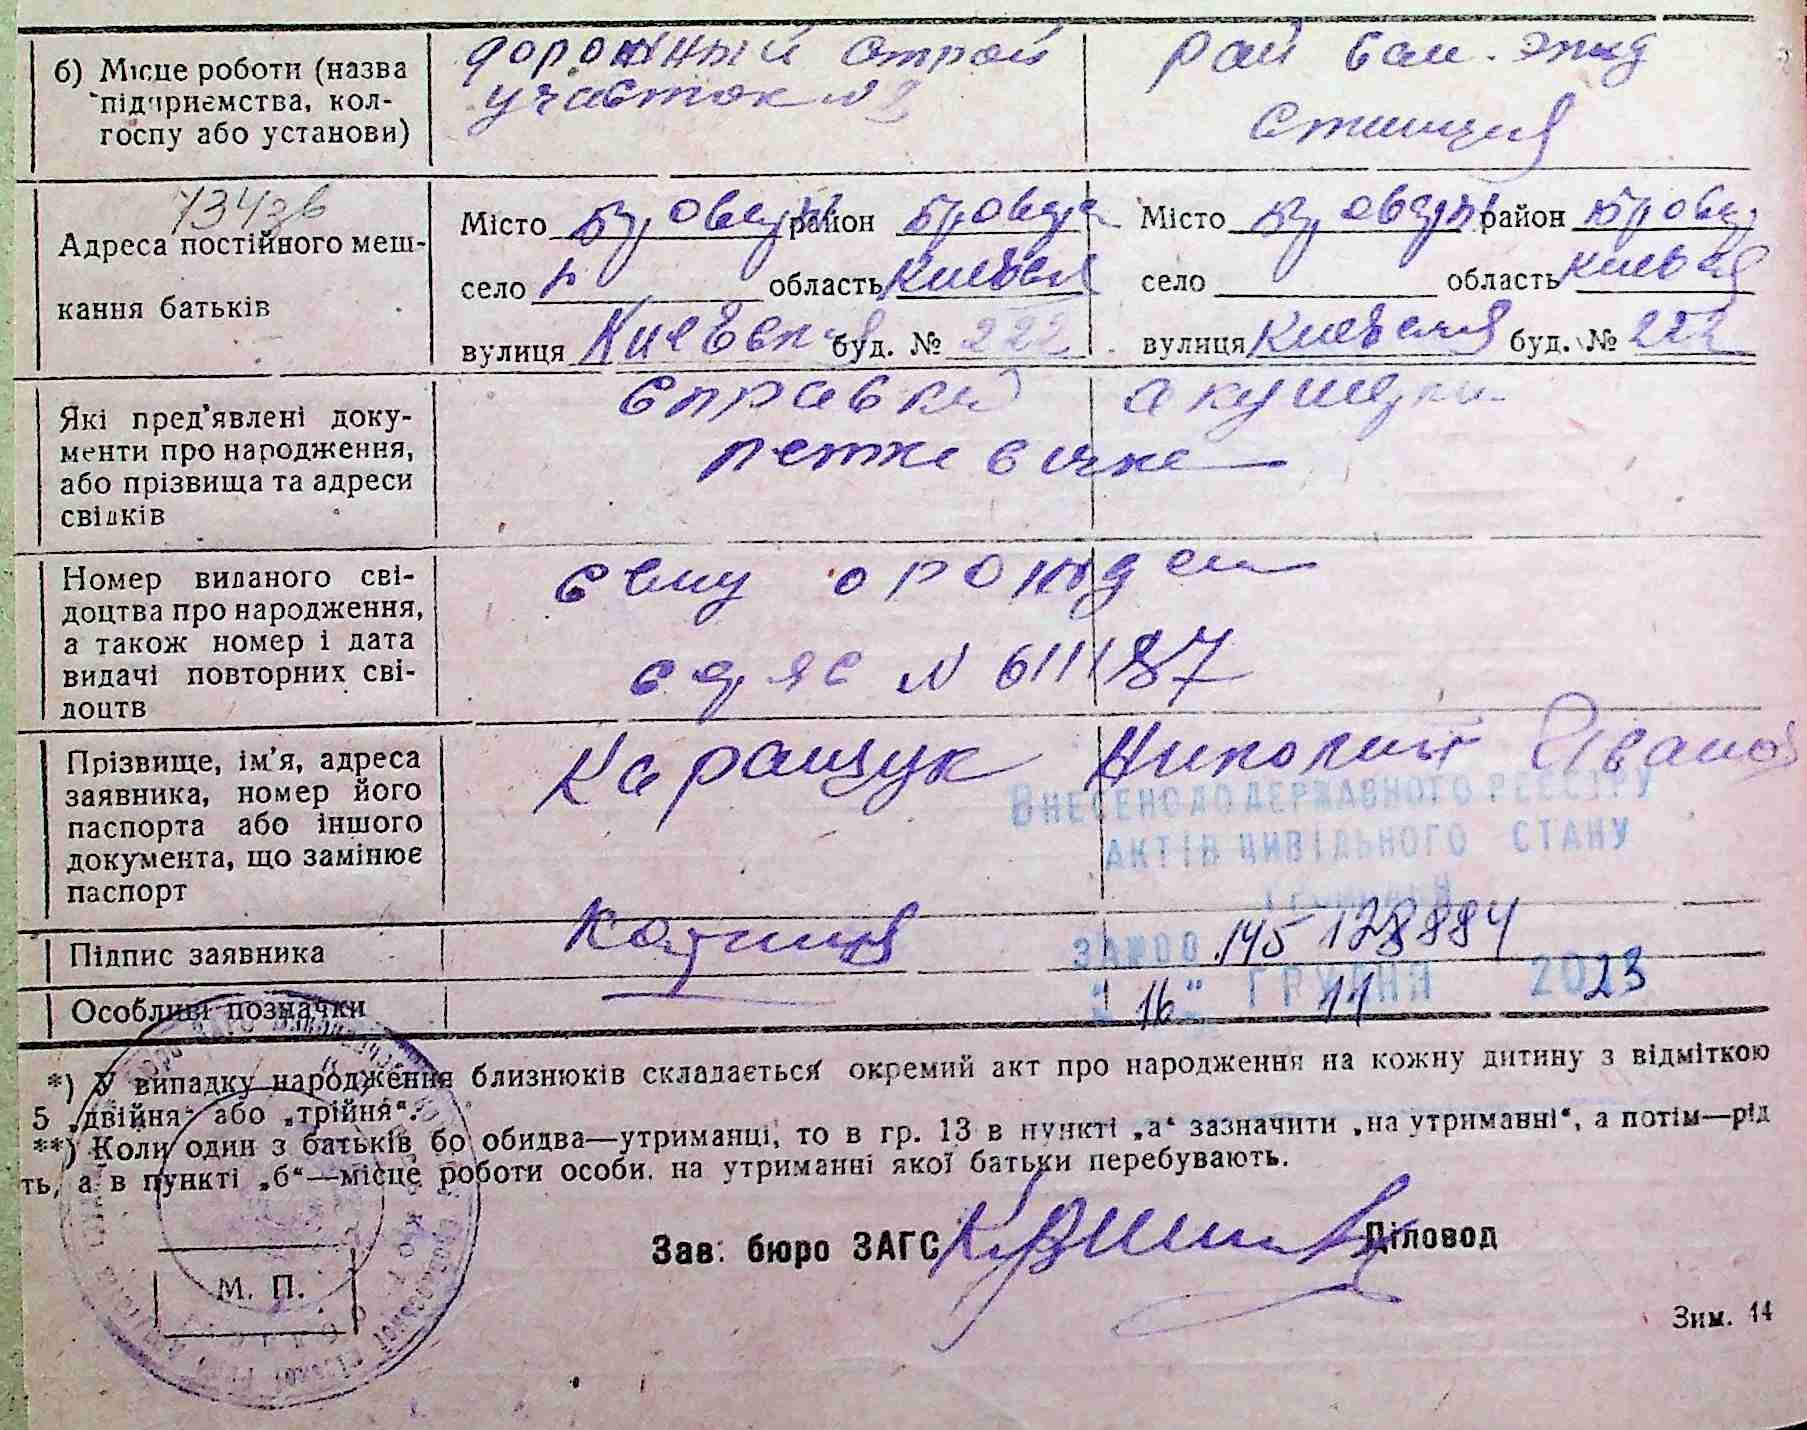 б) Місце роботи (назва
підприємства, кол-
госпу або установи)
дорожный строй
участок № 2
рай сан. эпид
станция
734зв
Адреса постійного меш-
кання батьків
Місто Бровары район Бровар
село область Киевская
вулиця Киевская буд. № 222
Місто Бровары район Бровар
село область Киевская
вулиця Киевская буд. № 222
Які пред'явлені доку-
менти про народження,
або прізвища та адреси
свідків
справка акушерки
Номер виданого сві-
доцтва про народження,
а також номер і дата
видачі повторних сві-
доцтв
о рожден
№ 611187
Прізвище, ім'я, адреса
заявника, номер його
паспорта або іншого
документа, що замінює
паспорт
Каращук Николай Иванов
ВНЕСЕНО ДО ДЕРЖАВНОГО РЕЄСТРУ
АКТІВ ЦИВІЛЬНОГО СТАНУ
ГРОМАДЯН
Підпис заявника
ЗА №00 145 128884
Особливі позначки
"16" ГРУДНЯ 11 2023
*) У випадку народження близнюків складається окремий акт про народження на кожну дитину з відміткою
5 „двійня“ або „трійня“.
**) Коли один з батьків бо обидва—утриманці, то в гр. 13 в пункті „а“ зазначити „на утриманні“, а потім—рід
ть, а в пункті „б“—місце роботи особи. на утриманні якої батьки перебувають.
Зав. бюро ЗАГС Діловод
М. П.
Зим. 14